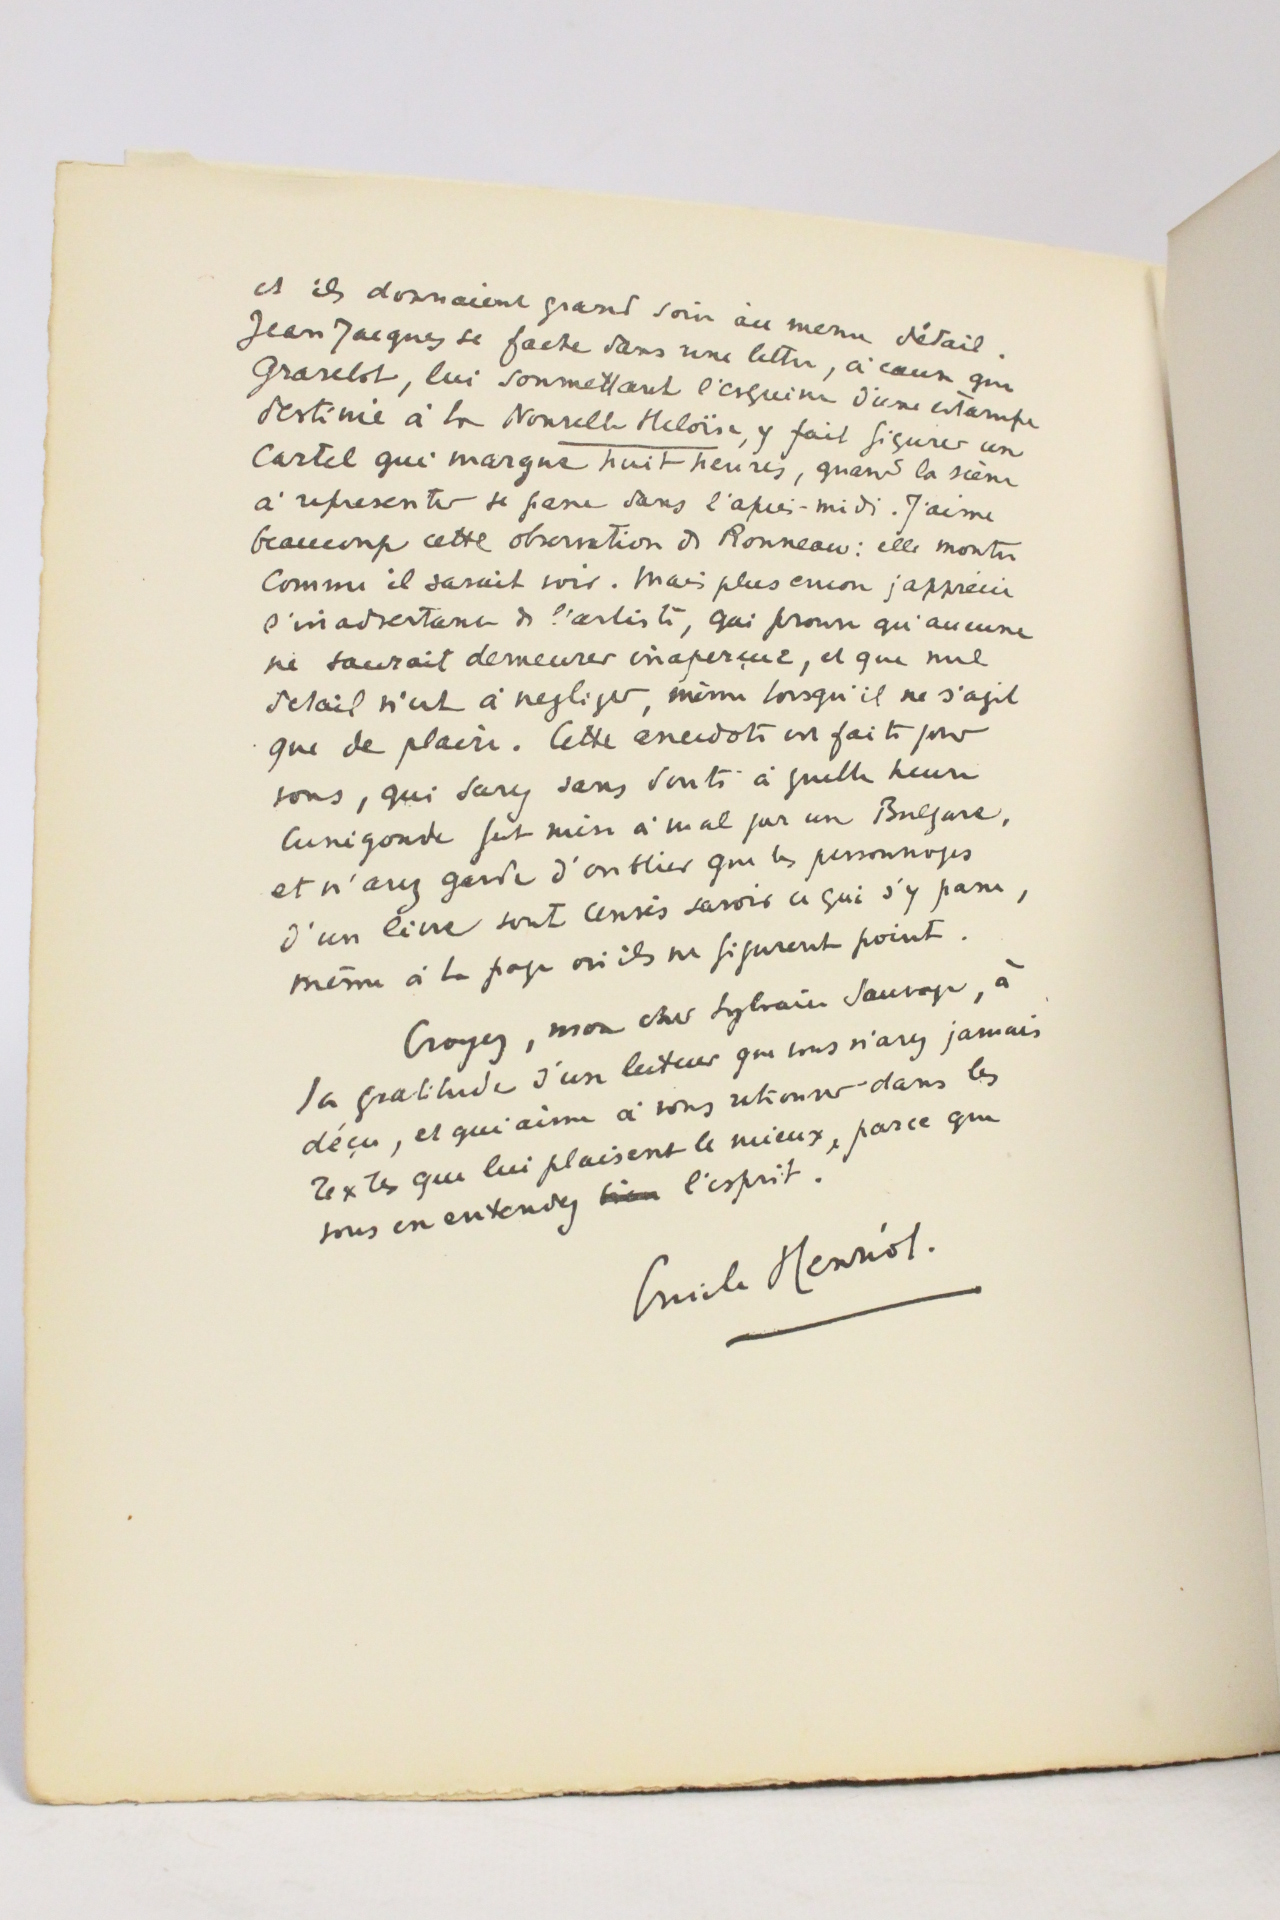 et ils donnaient grand soin au menu détail.
Jean Jacques se fache dans une lettre, à cause que
Gravelot, lui soumettant l'esquisse d'une estampe
destinée à la Nouvelle Heloïse, y fait figurer un
Cartel qui marque huit heures, quand la scène
à representer se passe dans l'après-midi. J'aime
beaucoup cette observation de Rousseau : elle montre
comme il savait voir. Mais plus encore j'apprécie
l'inadvertance de l'artiste, qui prouve qu'aucune
ne saurait demeurer inaperçue, et que nul
detail n'est à negliger, même lorsqu'il ne s'agit
que de plaire. Cette anecdote est faite pour
vous, qui savez sans doute à quelle heure
Cunégonde fut mise à mal par un Bulgare,
et n'avez garde d'oublier que les personnages
d'un livre sont censés savoir ce qui s'y passe,
même à la page où ils ne figurent point.
Croyez, mon cher Sylvain Sauvage, à
la gratitude d'un lecteur que vous n'avez jamais
déçu, et qui aime à vous retrouver dans les
textes que lui plaisent le mieux, parce que
vous en entendez bien l'esprit.
Emile Henriot.